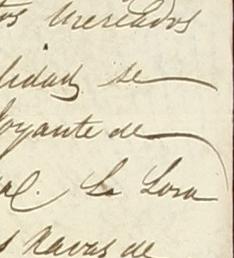 os mercados
lidad se
oyante de
al. La Lora
s Navas de